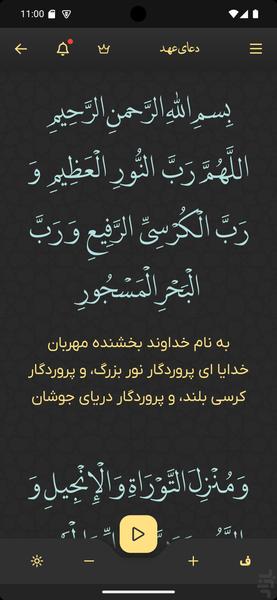 11:00
دعای عهد
بِسمِ اللهِ الرَّحمنِ الرَّحیمِ
اللَّهُمَّ رَبَّ النُّورِ الْعَظِیمِ وَ
رَبَّ الْکُرْسِیِّ الرَّفِیعِ وَ رَبَّ
الْبَحْرِ الْمَسْجُورِ
به نام خداوند بخشنده مهربان
خدایا ای پروردگار نور بزرگ، و پروردگار
کرسی بلند، و پروردگار دریای جوشان
وَ مُنْزِلَ التَّوْرَاةِ وَ الْإِنْجِیلِ وَ
ف
بازار